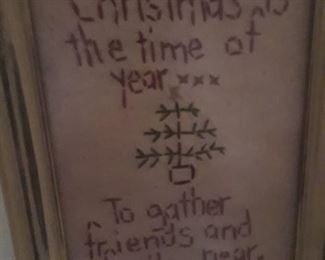 Christmas is
the time of
year xxx
To gather
friends and
near.